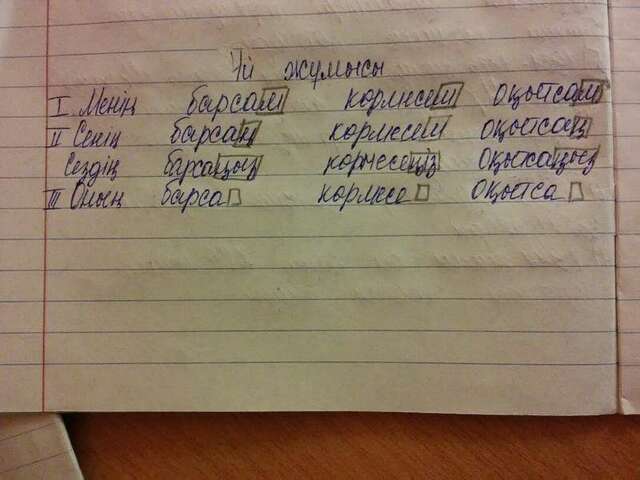 Үй жұмысы
I Менің барсам көрмесем оқытсам
II Сенің барсаң көрмесең оқытсаң
Сездің барсаңыз көрмесеңіз оқытсаңыз
III Оның барса көрмесе оқытса